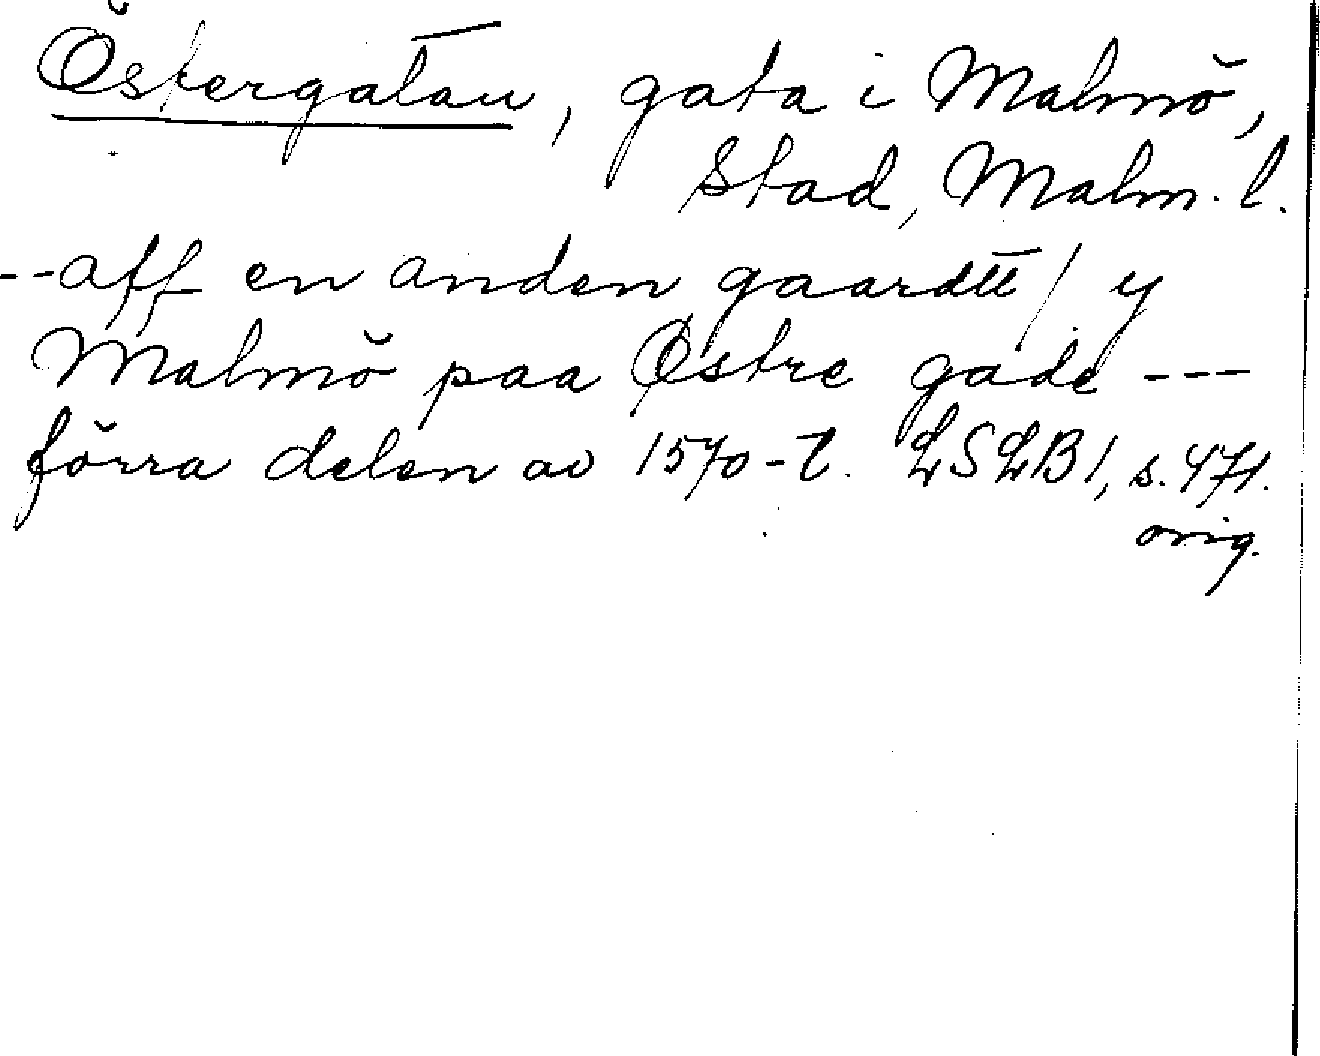 Östergatan, gata i Malmö,
Stad, Malm. l.
--aff en anden gaardtt / y
Malmö paa Østre gade ---
förra delen av 1570-t. LSLB1, s. 471.
orig.